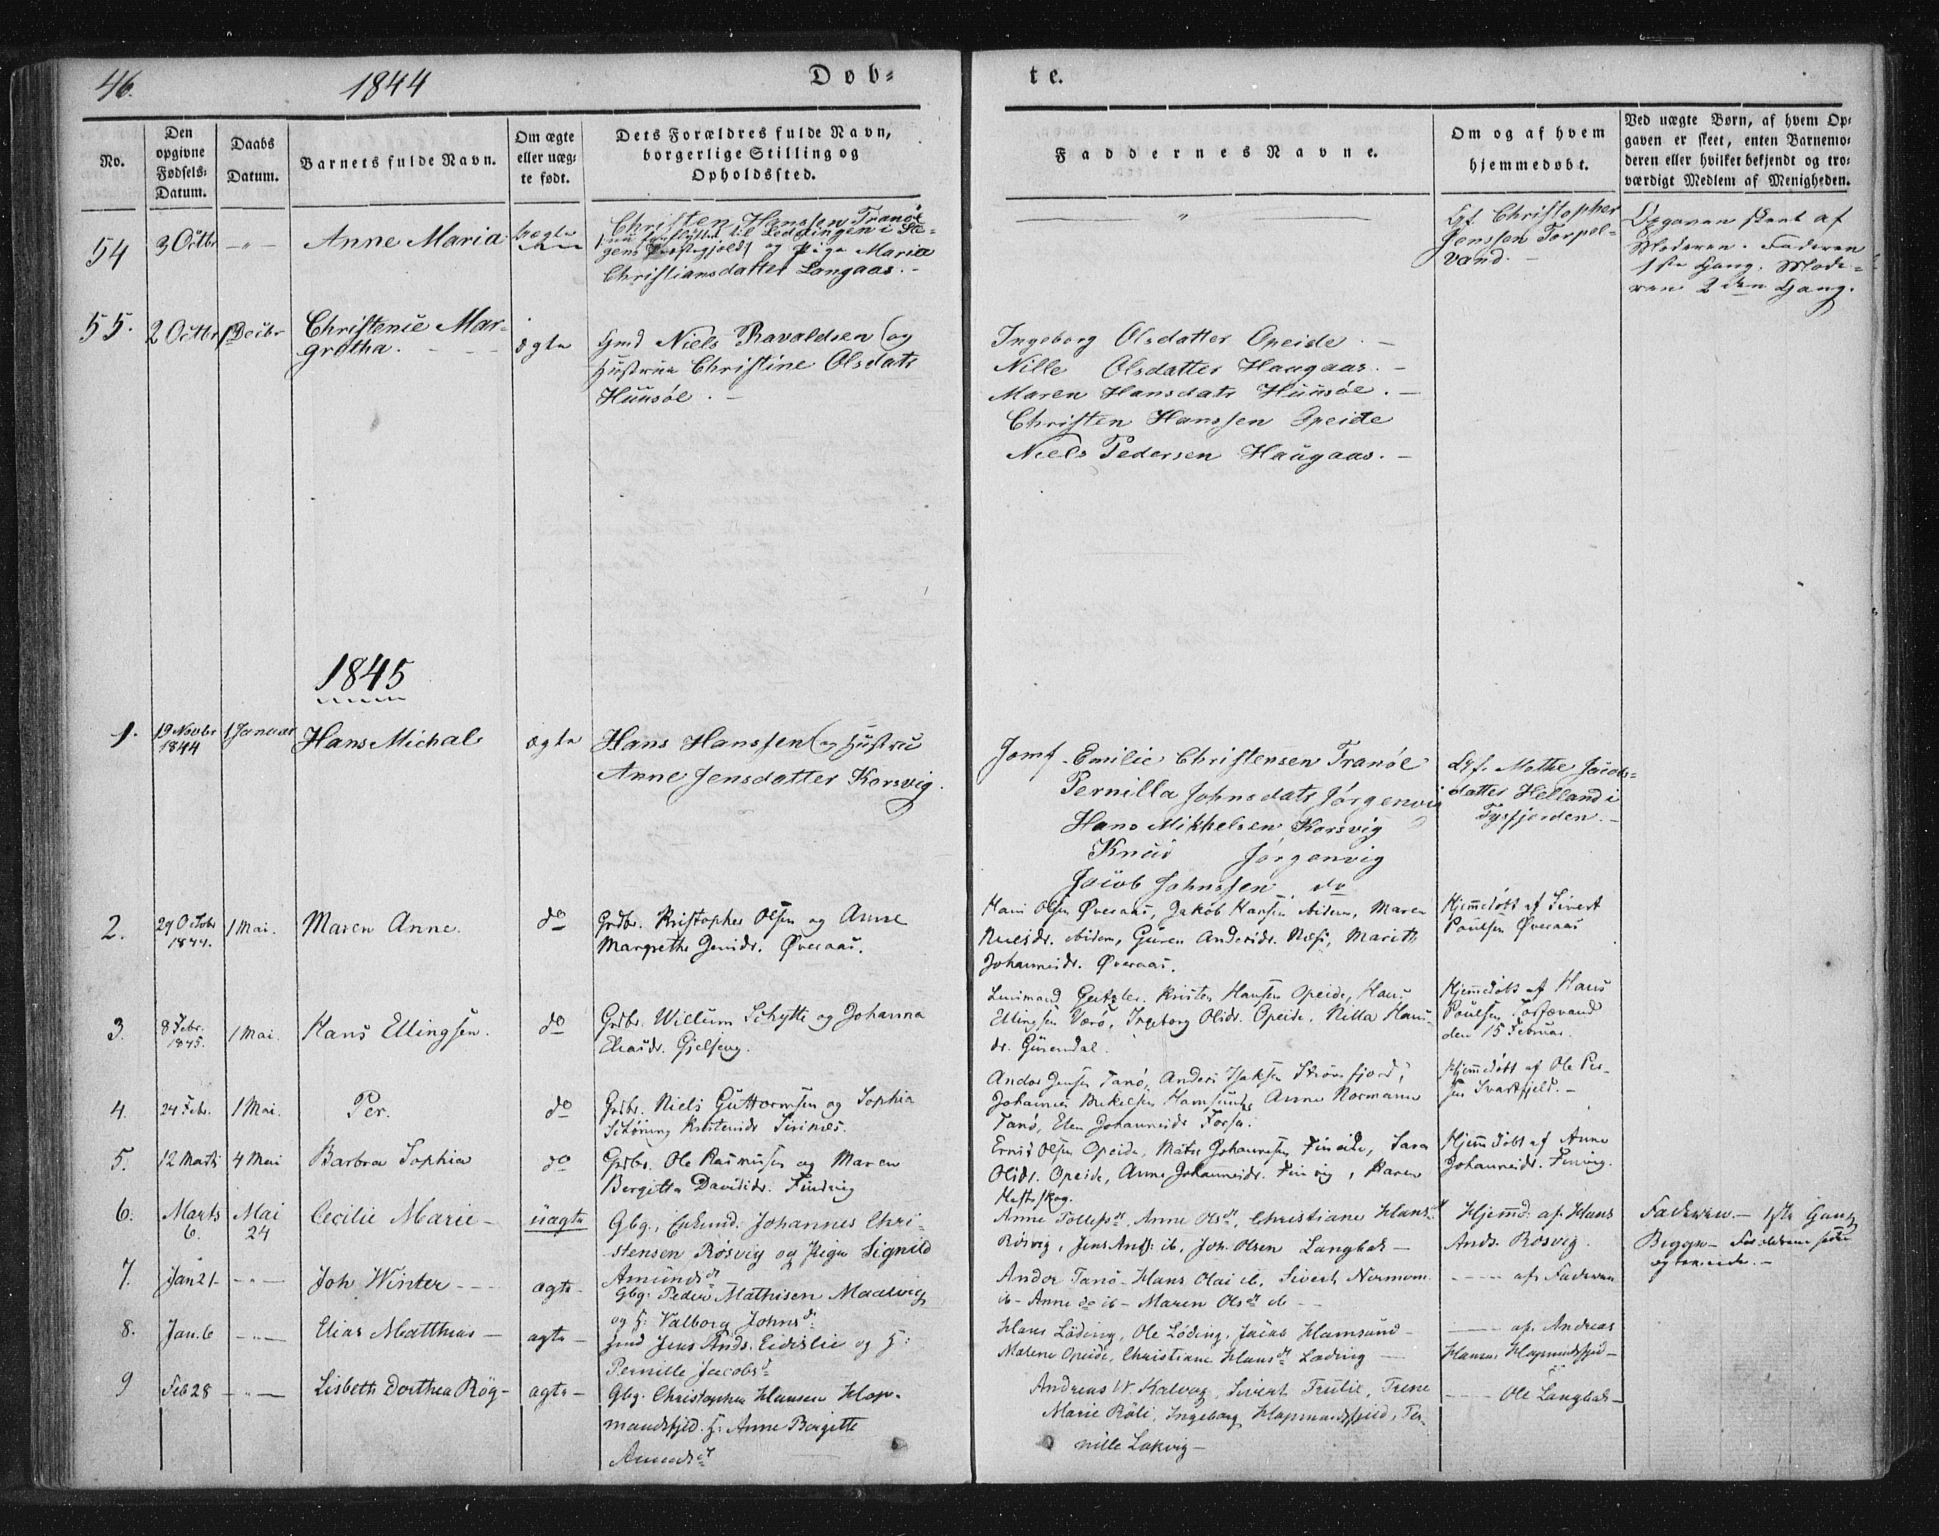 46. 1844 Døb= te.
No.
Den opgivne Fødsels-Datum.
Daabs Datum.
Barnets fulde Navn.
Om ægte eller uægte født.
Dets Forældres fulde Navn, borgerlige Stilling og Opholdssted.
Faddernes Navne.
Om og af hvem hjemmedøbt.
Ved uægte Børn, af hvem Opgaven er skeet, enten Barnemoderen eller hvilket bekjendt og troværdigt Medlem af Menigheden.
54 3 Octbr — " — Anne Maria uægte
Christen Hanssen Tranöe
til Loddingen i
gens og Pige Maria
Christiansdatter Langaas. –
— " —
Christopher
Jenssen
vand. –
Opgaven skeet af
Moderen. Faderen
1ste Gang. Mode-
ren 2den Gang.
55. 2 Octbr 1 Decbr Christenie Mar-
gretha. ægte
Gmd Niels Ravaldsen (og
Hustrue Christine Olsdatr
Huusöe. –
Ingeborg Olsdatter Opeide. –
Nille Olsdatter Haugaas. –
Maren Hansdatr Huusöe. –
Christen Hanssen Opeide
Niels Pedersen Haugaas. –
1845
1. 19 Novbr 1844 1 Januar Hans Michal ægte
Hans Hanssen (og Hustru
Anne Jensdatter Korsvig.
Jomf. Emilie Christensen Tranöe
Pernilla Johnsdatr Jörgenvig
Hans Mikkelsen Korsvig
Knud Jörgenvig
Jacob Johnssen do
Mothe Jacobs-
datter Helland i
Tysfjorden. –
2. 29 Octobr 1844. 1 Mai. Maren Anne. do
Grdbr. Kristopher Olsen og Anne
Margrethe Øveraas.
Hans Olsen Øveraas, Jakob Hansen ibidem, Maren
ibidem, Guren Andersdr. Næs, Marith
Johannesdr. Øveraas.
Hjemmedöbt af Sivert
Poulsen Øveraas
3. 8 Febr. 1845. 1 Mai. Hans Ellingsen. do
Grdbr. Willum Schytte og Johanna
Eliasdr. Gjelseng.
Lensmand Kristen Hansen Opeide, Hans
Ellingsen Værö, Ingeborg Olsdr. Opeide, Nilla Hans-
dr.
Hjemmedöbt af Hans
Poulsen
den 15 Februar.
4. 24 Febr. 1 Mai. Per. do
Grdbr. Niels Guttormsen og Sophia
Schöning
Andor Jensen Tanö, Anders Isaksen
Johannes Mikelsen Hamsund, Anne Normann
Tanö, Elen Johannesdr
Hjemmedöbt af Ole Per-
sen Svartfjeld. –
5. 12 Marts 4 Mai Barbra Sophia do
Grdbr. Ole Rasmussen og Maren
Bergitta Davidsdr. Findvig
Olsen Opeide, Mats Johannesen Sara
Olsdr. Opeide, Anne Johannesdr. Finvig, Karen
Hestskog.
Hjemmedöbt af Anne
Johannesdr. Finvig.
6. Marts 6. Mai 24 Cecilie Marie – uægte
Gbg., Johannes Chri-
stensen Rösvig og Pige Signild
Amundsdt
Anne Tollefsdt, Anne Olsdt, Christiane Hansdt
Rösvig, Jens And: ib, Joh. Olsen Langbak –
Hjemd: af Hans
Ands. Rosvig.
Faderen – 1ste Gang
Begge –
7. Jan 21 – " – Joh. Winter – ægte –
Gbg. Peder Mathisen Maalvig
og H: Valborg Johnsdt
Andor Tanö – Hans Olai ib, Sivert Normom.
ib – Anne do ib – Maren Olsdt ib –
– af Faderen
8. Jan. 6 – " – Elias Matthias – ægte –
Hmd Jens Ands. Eidislie og H:
Pernille Jacobsdt
Hans Löding, Ole Löding, Jacob Hamsund –
Malene Opeide, Christiane Hansdt Löding –
– af Andreas
Hansen Hapmundsfjed –
9 Feb 28 – " – Lisbeth Dorthea Røg – ægte –
Gbg. Christopher Hansen Hap-
mandsfjed. H: Anne Bergitte
Amundsdt
Andreas W. Kalvag, Sivert Trene
Marie Röli, Ingeborg Hapmundsfjeld, Per-
nille Lakvig –
– Ole Langbak –